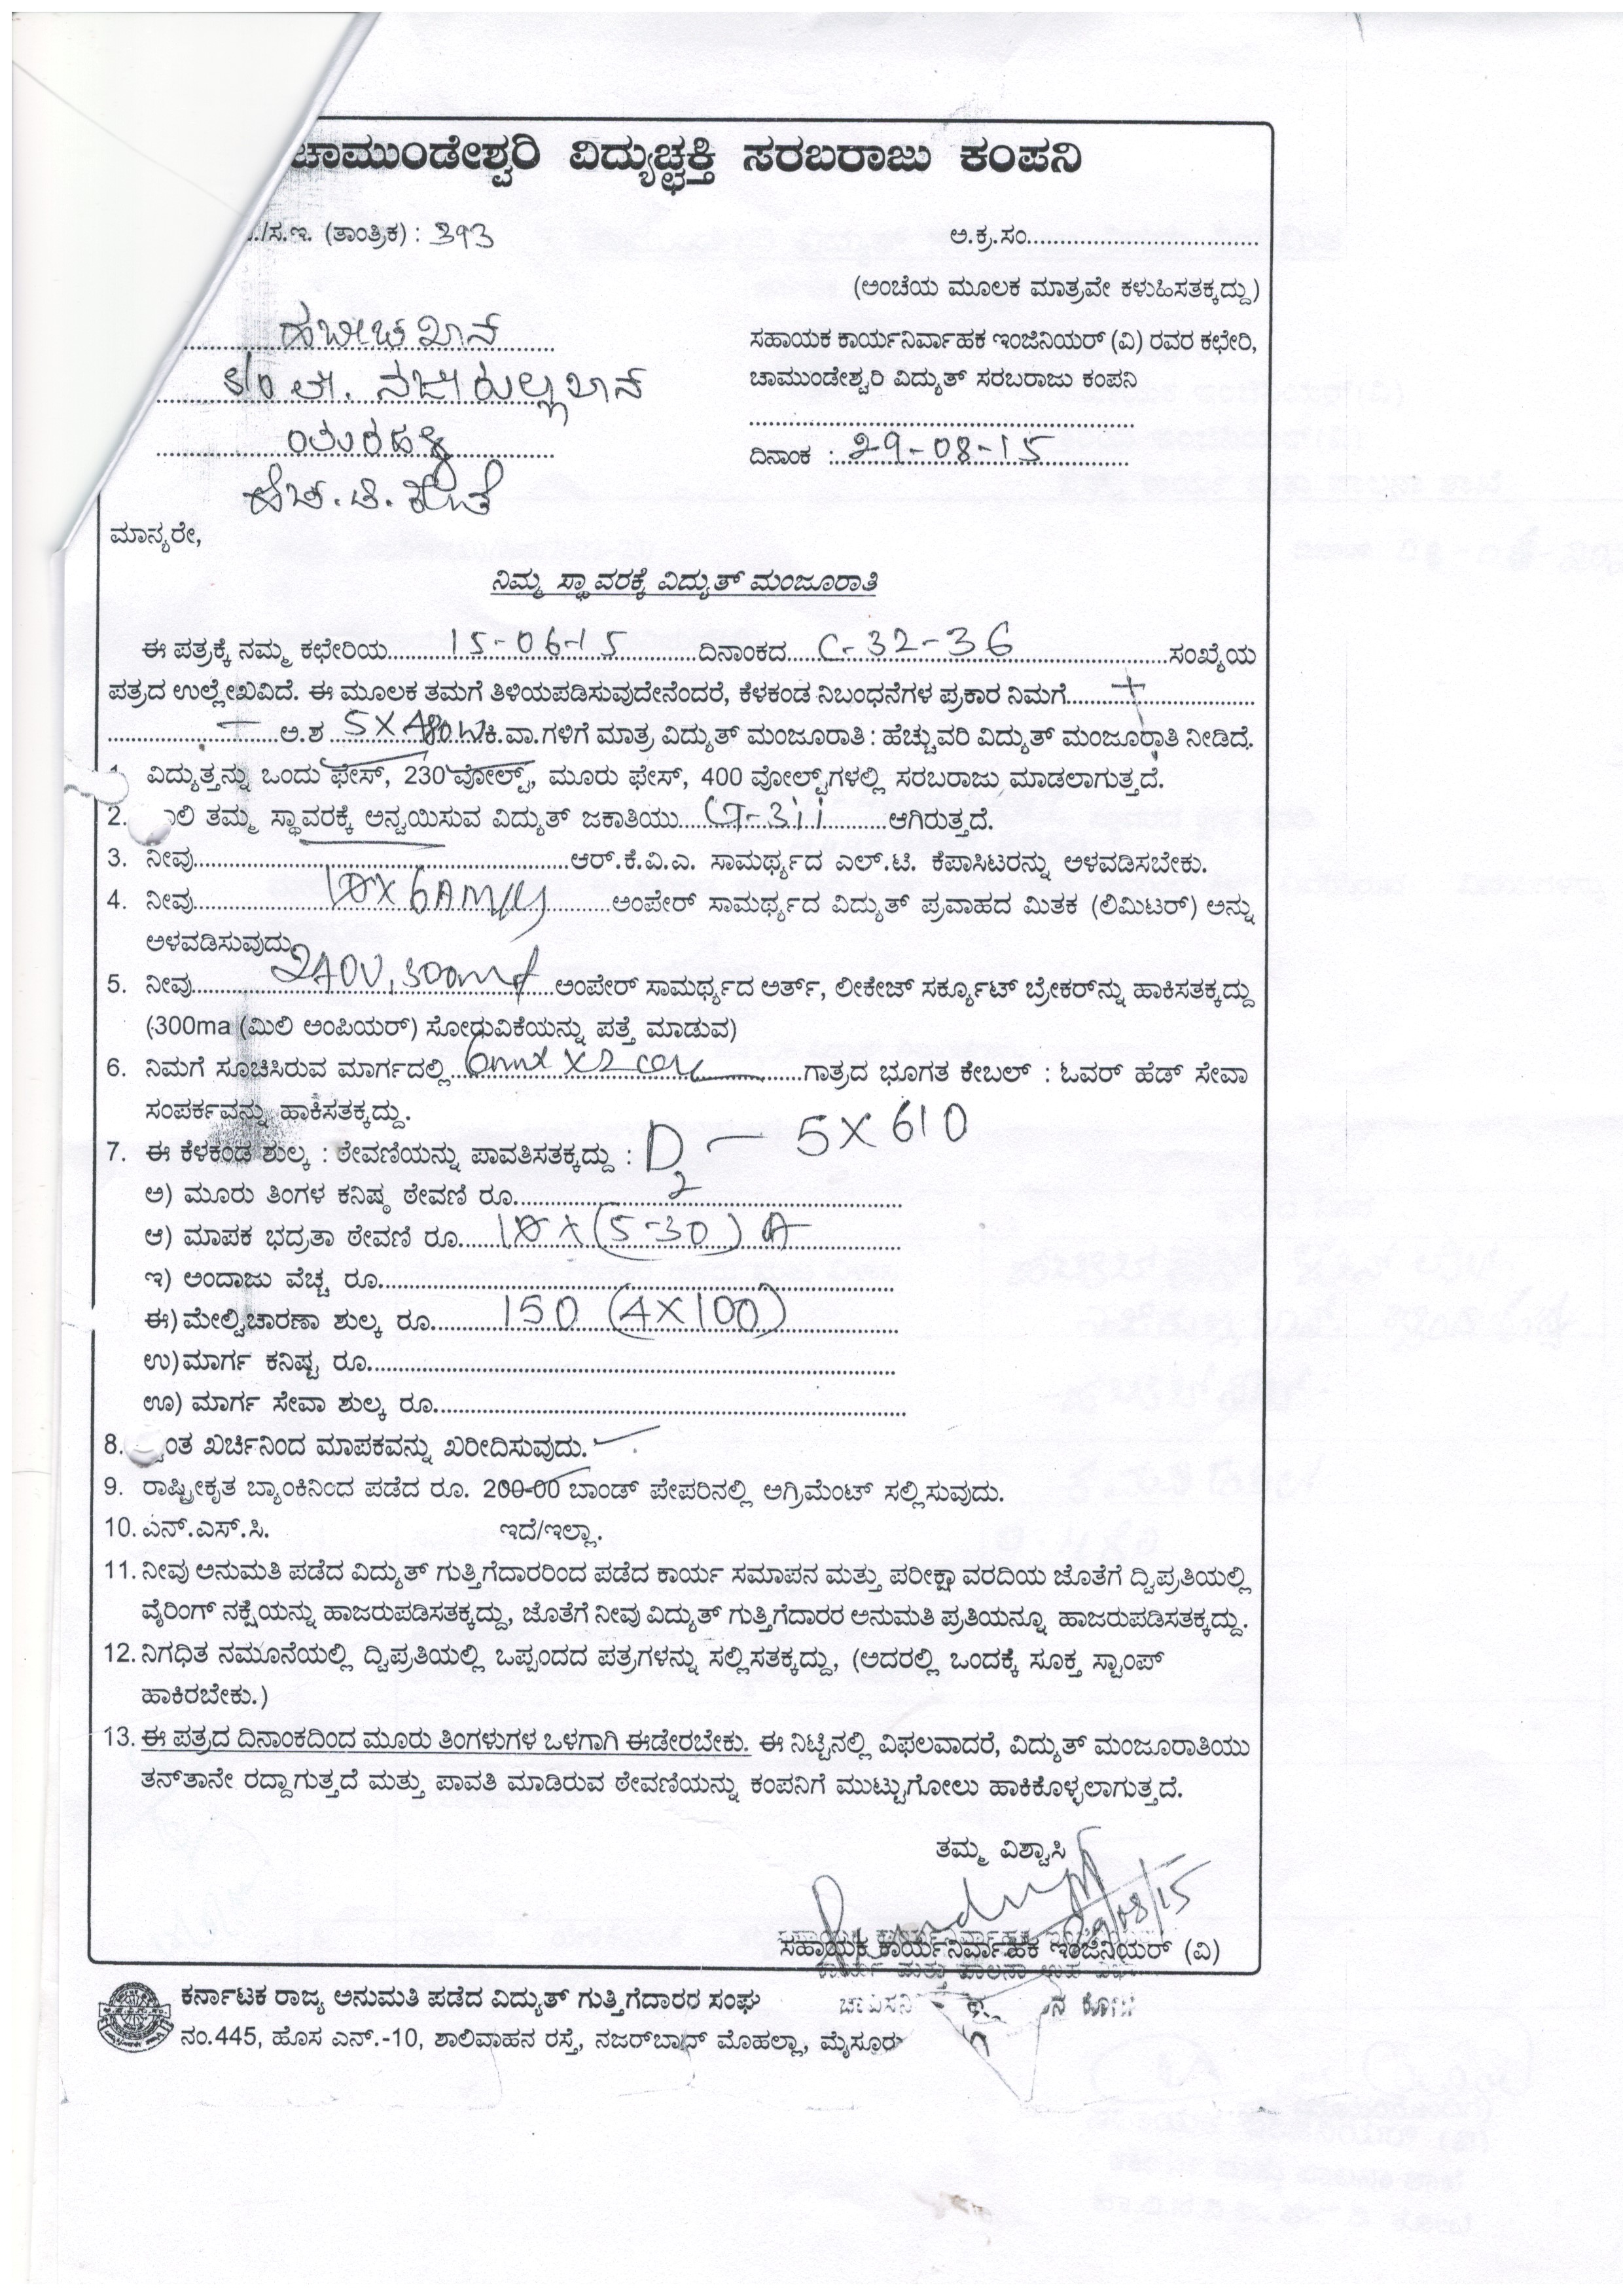 ಚಾಮುಂಡೇಶ್ವರಿ ವಿದ್ಯುಚ್ಛಕ್ತಿ ಸರಬರಾಜು ಕಂಪನಿ
/ಸ.ಇ. (ತಾಂತ್ರಿಕ) : 393
ಅ.ಕ್ರ.ಸಂ
(ಅಂಚೆಯ ಮೂಲಕ ಮಾತ್ರವೇ ಕಳುಹಿಸತಕ್ಕದ್ದು)
ಸಹಾಯಕ ಕಾರ್ಯನಿರ್ವಾಹಕ ಇಂಜಿನಿಯರ್ (ವಿ) ರವರ ಕಛೇರಿ,
ಚಾಮುಂಡೇಶ್ವರಿ ವಿದ್ಯುತ್ ಸರಬರಾಜು ಕಂಪನಿ
ದಿನಾಂಕ : 29-08-15
ಹಬೀಬ್ ಖಾನ್
S/o ಲೇ. ನಜೀರುಲ್ಲ ಖಾನ್
ಹೆಚ್.ಡಿ.ಕೋಟೆ
ಮಾನ್ಯರೇ,
ನಿಮ್ಮ ಸ್ಥಾವರಕ್ಕೆ ವಿದ್ಯುತ್ ಮಂಜೂರಾತಿ
ಈ ಪತ್ರಕ್ಕೆ ನಮ್ಮ ಕಛೇರಿಯ 15-06-15 ದಿನಾಂಕದ C-32-36 ಸಂಖ್ಯೆಯ
ಪತ್ರದ ಉಲ್ಲೇಖವಿದೆ. ಈ ಮೂಲಕ ತಮಗೆ ತಿಳಿಯಪಡಿಸುವುದೇನೆಂದರೆ, ಕೆಳಕಂಡ ನಿಬಂಧನೆಗಳ ಪ್ರಕಾರ ನಿಮಗೆ
ಅ.ಶ 5X480W ಕಿ.ವಾ.ಗಳಿಗೆ ಮಾತ್ರ ವಿದ್ಯುತ್ ಮಂಜೂರಾತಿ : ಹೆಚ್ಚುವರಿ ವಿದ್ಯುತ್ ಮಂಜೂರಾತಿ ನೀಡಿದೆ.
ವಿದ್ಯುತ್ತನ್ನು ಒಂದು ಫೇಸ್, 230 ವೋಲ್ಟ್, ಮೂರು ಫೇಸ್, 400 ವೋಲ್ಟ್‌ಗಳಲ್ಲಿ ಸರಬರಾಜು ಮಾಡಲಾಗುತ್ತದೆ.
2. ಾಲಿ ತಮ್ಮ ಸ್ಥಾವರಕ್ಕೆ ಅನ್ವಯಿಸುವ ವಿದ್ಯುತ್ ಜಕಾತಿಯು ಆಗಿರುತ್ತದೆ.
3. ನೀವು ಆರ್.ಕೆ.ವಿ.ಎ. ಸಾಮರ್ಥ್ಯದ ಎಲ್.ಟಿ. ಕೆಪಾಸಿಟರನ್ನು ಅಳವಡಿಸಬೇಕು.
4. ನೀವು ಅಂಪೇರ್ ಸಾಮರ್ಥ್ಯದ ವಿದ್ಯುತ್ ಪ್ರವಾಹದ ಮಿತಕ (ಲಿಮಿಟರ್) ಅನ್ನು
ಅಳವಡಿಸುವುದು.
5. ನೀವು 240V, 300mA ಅಂಪೇರ್ ಸಾಮರ್ಥ್ಯದ ಅರ್ತ್, ಲೀಕೇಜ್ ಸರ್ಕ್ಯೂಟ್ ಬ್ರೇಕರ್‌ನ್ನು ಹಾಕಿಸತಕ್ಕದ್ದು
(300ma (ಮಿಲಿ ಅಂಪಿಯರ್) ಸೋರುವಿಕೆಯನ್ನು ಪತ್ತೆ ಮಾಡುವ)
6. ನಿಮಗೆ ಸೂಚಿಸಿರುವ ಮಾರ್ಗದಲ್ಲಿ ಗಾತ್ರದ ಭೂಗತ ಕೇಬಲ್ : ಓವರ್ ಹೆಡ್ ಸೇವಾ
ಸಂಪರ್ಕವನ್ನು ಹಾಕಿಸತಕ್ಕದ್ದು.
7. ಈ ಕೆಳಕಂಡ ಶುಲ್ಕ : ಠೇವಣಿಯನ್ನು ಪಾವತಿಸತಕ್ಕದ್ದು : D2 - 5X610
ಅ) ಮೂರು ತಿಂಗಳ ಕನಿಷ್ಠ ಠೇವಣಿ ರೂ.
ಆ) ಮಾಪಕ ಭದ್ರತಾ ಠೇವಣಿ ರೂ. (5-30) A
ಇ) ಅಂದಾಜು ವೆಚ್ಚ ರೂ.
ಈ) ಮೇಲ್ವಿಚಾರಣಾ ಶುಲ್ಕ ರೂ. 150 (4X100)
ಉ) ಮಾರ್ಗ ಕನಿಷ್ಟ ರೂ.
ಊ) ಮಾರ್ಗ ಸೇವಾ ಶುಲ್ಕ ರೂ.
8. ಂತ ಖರ್ಚಿನಿಂದ ಮಾಪಕವನ್ನು ಖರೀದಿಸುವುದು.
9. ರಾಷ್ಟ್ರೀಕೃತ ಬ್ಯಾಂಕಿನಿಂದ ಪಡೆದ ರೂ. 200-00 ಬಾಂಡ್ ಪೇಪರಿನಲ್ಲಿ ಅಗ್ರಿಮೆಂಟ್ ಸಲ್ಲಿಸುವುದು.
10. ಎನ್.ಎಸ್.ಸಿ. ಇದೆ/ಇಲ್ಲಾ.
11. ನೀವು ಅನುಮತಿ ಪಡೆದ ವಿದ್ಯುತ್ ಗುತ್ತಿಗೆದಾರರಿಂದ ಪಡೆದ ಕಾರ್ಯ ಸಮಾಪನ ಮತ್ತು ಪರೀಕ್ಷಾ ವರದಿಯ ಜೊತೆಗೆ ದ್ವಿಪ್ರತಿಯಲ್ಲಿ
ವೈರಿಂಗ್ ನಕ್ಷೆಯನ್ನು ಹಾಜರುಪಡಿಸತಕ್ಕದ್ದು, ಜೊತೆಗೆ ನೀವು ವಿದ್ಯುತ್ ಗುತ್ತಿಗೆದಾರರ ಅನುಮತಿ ಪ್ರತಿಯನ್ನೂ ಹಾಜರುಪಡಿಸತಕ್ಕದ್ದು.
12. ನಿಗಧಿತ ನಮೂನೆಯಲ್ಲಿ ದ್ವಿಪ್ರತಿಯಲ್ಲಿ ಒಪ್ಪಂದದ ಪತ್ರಗಳನ್ನು ಸಲ್ಲಿಸತಕ್ಕದ್ದು, (ಅದರಲ್ಲಿ ಒಂದಕ್ಕೆ ಸೂಕ್ತ ಸ್ಟಾಂಪ್
ಹಾಕಿರಬೇಕು.)
13. ಈ ಪತ್ರದ ದಿನಾಂಕದಿಂದ ಮೂರು ತಿಂಗಳುಗಳ ಒಳಗಾಗಿ ಈಡೇರಬೇಕು. ಈ ನಿಟ್ಟಿನಲ್ಲಿ ವಿಫಲವಾದರೆ, ವಿದ್ಯುತ್ ಮಂಜೂರಾತಿಯು
ತನ್‌ತಾನೇ ರದ್ದಾಗುತ್ತದೆ ಮತ್ತು ಪಾವತಿ ಮಾಡಿರುವ ಠೇವಣಿಯನ್ನು ಕಂಪನಿಗೆ ಮುಟ್ಟುಗೋಲು ಹಾಕಿಕೊಳ್ಳಲಾಗುತ್ತದೆ.
ತಮ್ಮ ವಿಶ್ವಾಸಿ
ಸಹಾಯಕ ಕಾರ್ಯನಿರ್ವಾಹಕ ಇಂಜಿನಿಯರ್ (ವಿ)
ಕರ್ನಾಟಕ ರಾಜ್ಯ ಅನುಮತಿ ಪಡೆದ ವಿದ್ಯುತ್ ಗುತ್ತಿಗೆದಾರರ ಸಂಘ
ನಂ.445, ಹೊಸ ಎನ್.-10, ಶಾಲಿವಾಹನ ರಸ್ತೆ, ನಜರ್‌ಬಾದ್ ಮೊಹಲ್ಲಾ, ಮೈಸೂರು